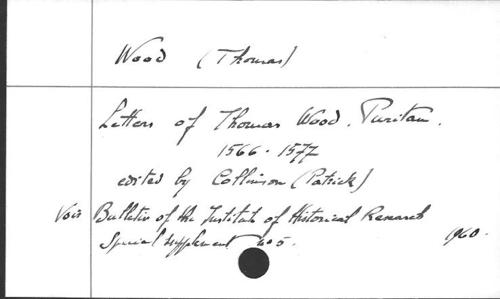 Wood (Thomas)
Letters of Thomas Wood. Puritan.
1566-1577
edited by Collinson (Patrick)
Voir Bulletin of the Institute of Historical Research
Special supplement no 5. 1960.